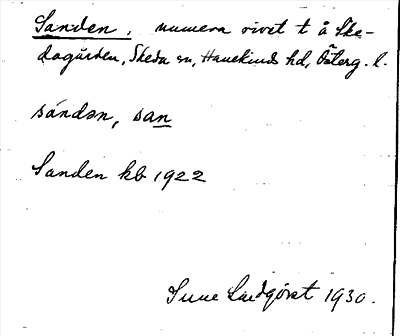 Sanden, numera rivet t å Ske-
dagården, Skeda sn, Hanekinds hd, Österg. l.
sándən, san
Sanden kb 1922
Sune Lindqvist 1930.